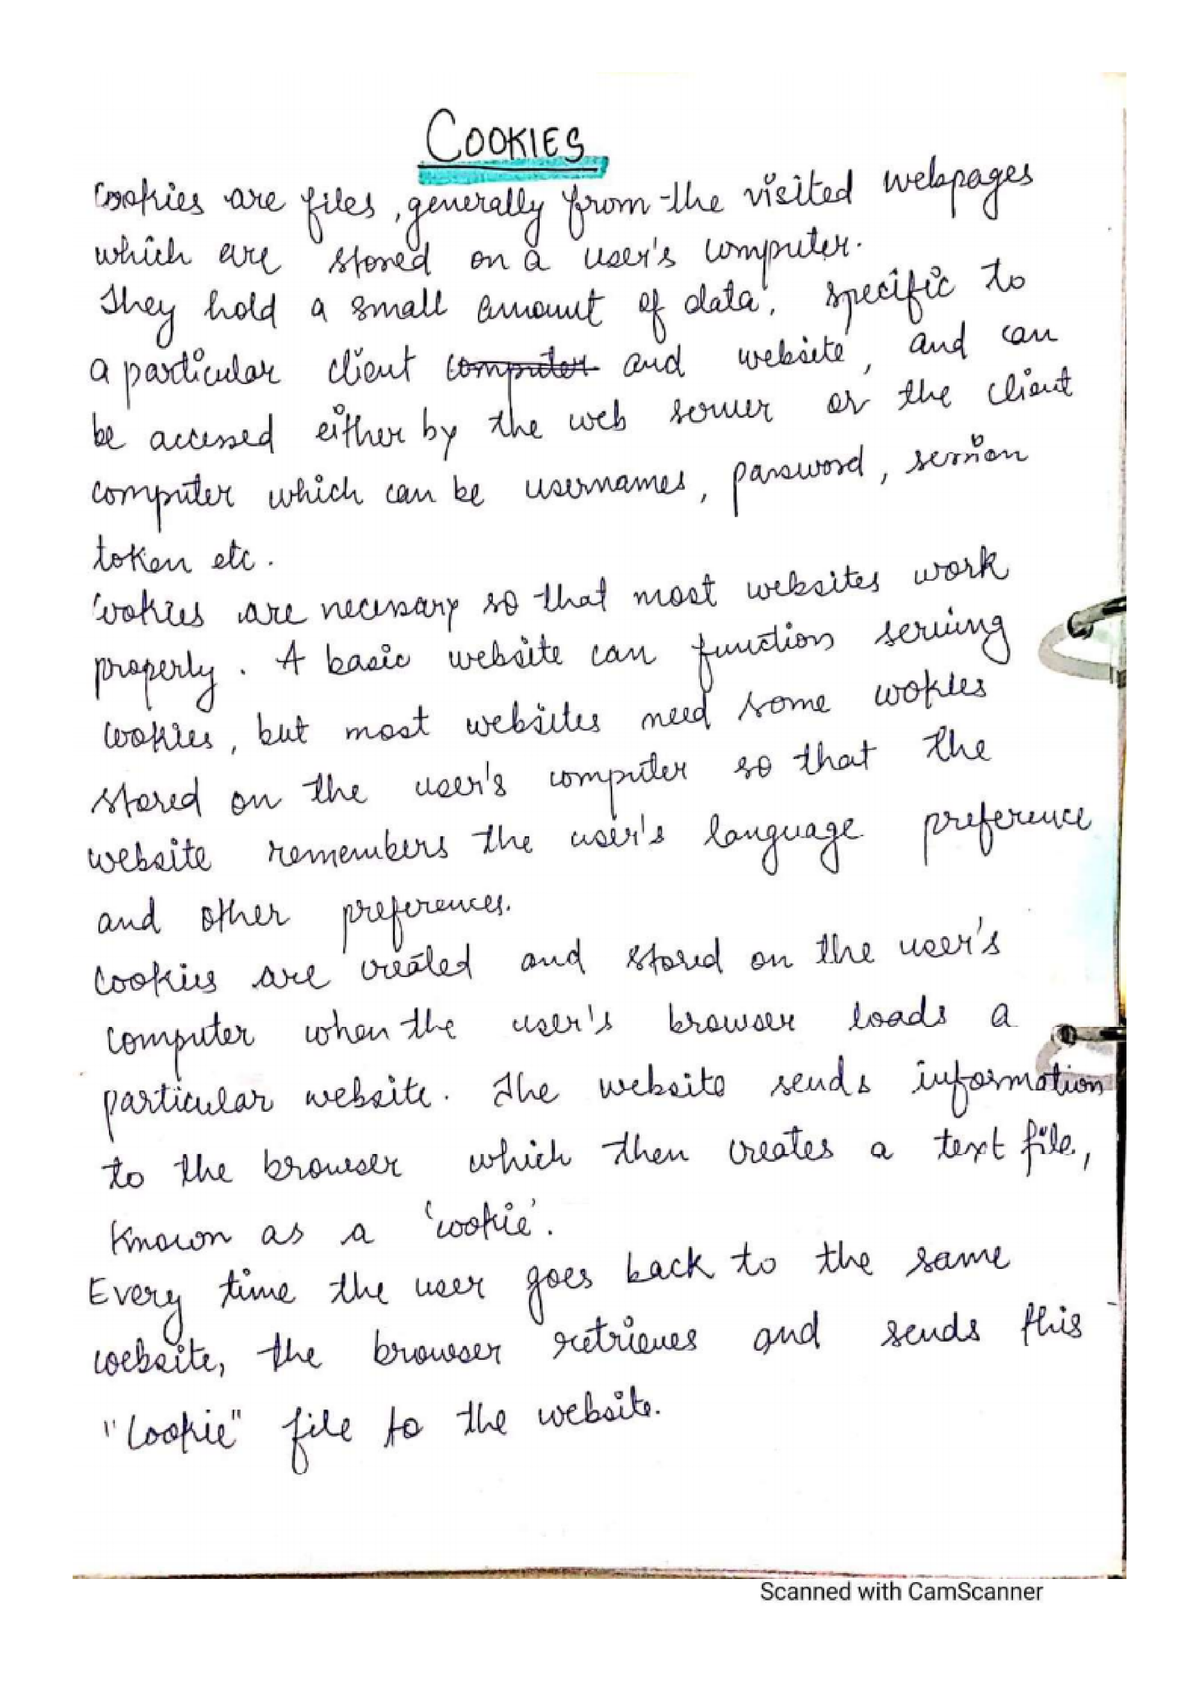 COOKIES
Cookies are files, generally from the visited webpages
which are stored on a user's computer.
They hold a small amount of data, specific to
a particular client computer and website, and can
be accessed either by the web server or the client
computer which can be usernames, password, session
token etc.
Cookies are necessary so that most websites work
properly. A basic website can function serving
cookies, but most websites need some cookies
stored on the user's computer so that the
website remembers the user's language preference
and other preferences.
Cookies are created and stored on the user's
computer when the user's browser loads a
particular website. The website sends information
to the browser which then creates a text file,
known as a 'cookie'.
Every time the user goes back to the same
website, the browser retrieves and sends this
"Cookie" file to the website.
Scanned with CamScanner